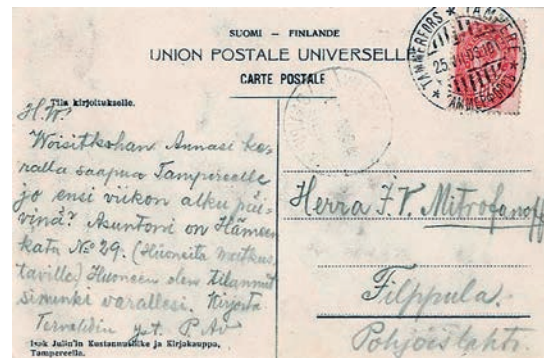 SUOMI – FINLANDE
UNION POSTALE UNIVERSELLE
CARTE POSTALE
TAMMERFORS * TAMPERE
Tila kirjoitukselle.
H.W!
Woisitkohan Annasi ke-
ralla saapua Tampereelle
jo ensi viikon alku päi-
vinä? Asuntoni on Hämeen
katu No 29. (Huoneita matkus
taville) Huoneen olen tilannut
sinunki varallesi. Kirjota
Tervehdin yst.
Herra J.V. Mitrofanoff
Filppula.
Pohjoislahti.
Isak Julin'in Kustannusliike ja Kirjakauppa,
Tampereella.